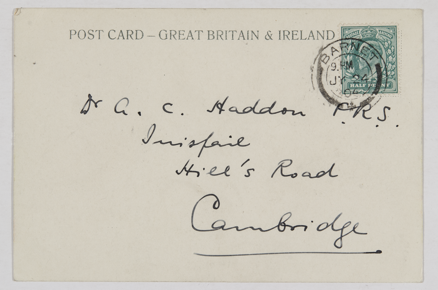 POST CARD – GREAT BRITAIN & IRELAND
BARNET
9. PM
JY 24
HALF PENNY
Dr A. C. Haddon F.R.S.
Inisfail
Hill's Road
Cambridge